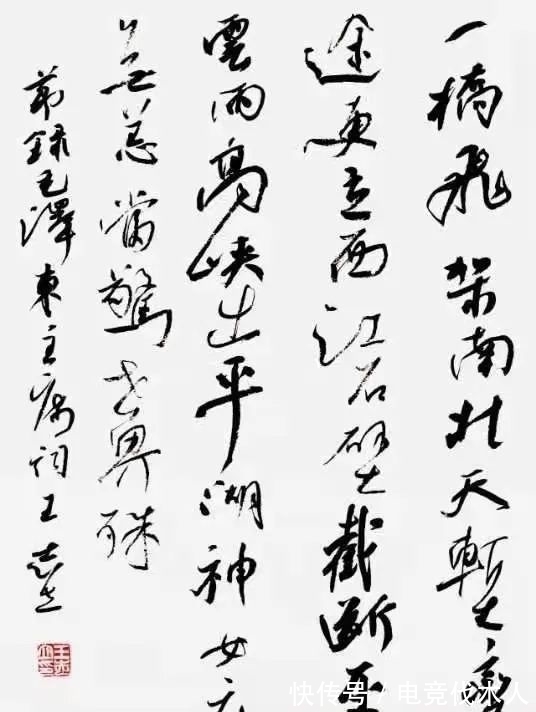 一橋飛架南北天塹變
途更立西江石壁截斷巫
雲雨高峽出平湖神女應
無恙當驚世界殊
節錄毛澤東主席詞王
快传号 / 电竞伐木人